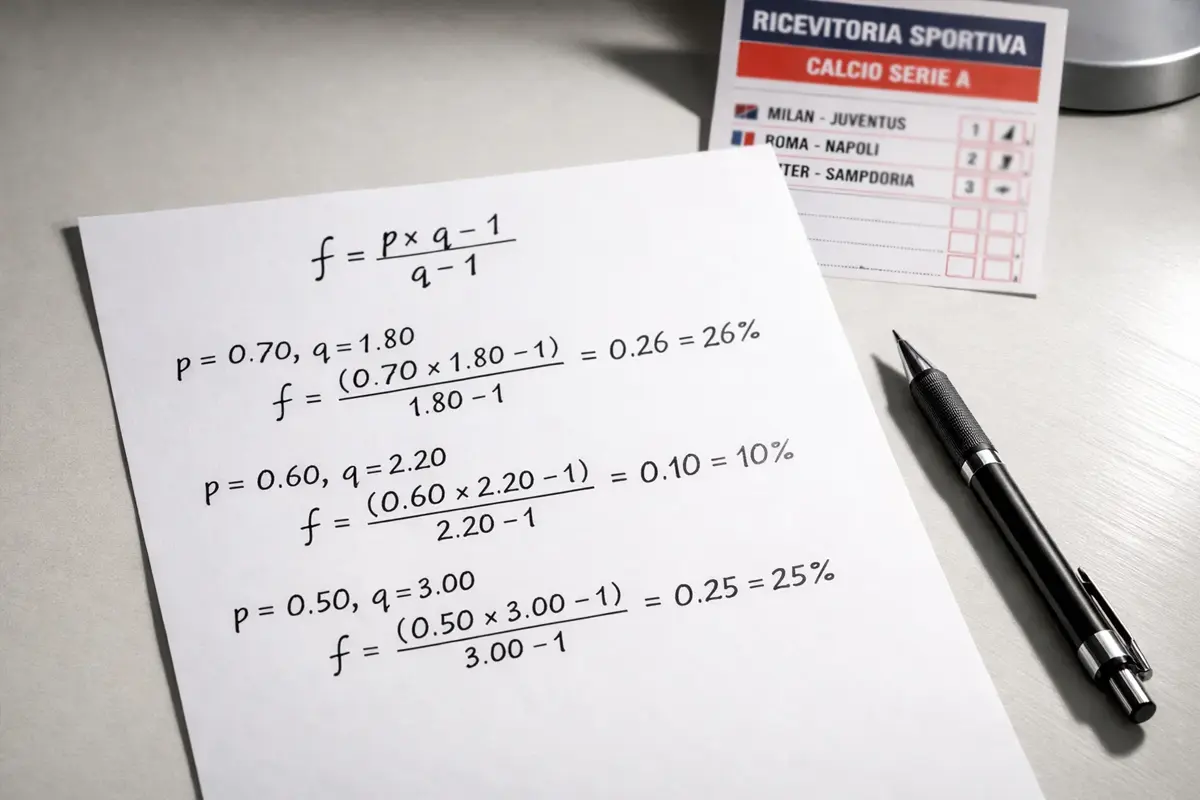 RICEVITORIA SPORTIVA
CALCIO SERIE A
MILAN - JUVENTUS 1
ROMA - NAPOLI 2
TER - SAMPDORIA 3
f = p × q - 1
q - 1
p = 0.70, q = 1.80
f = (0.70 × 1.80 - 1) = 0.26 = 26%
1.80 - 1
p = 0.60, q = 2.20
f = (0.60 × 2.20 - 1) = 0.10 = 10%
2.20 - 1
p = 0.50, q = 3.00
f = (0.50 × 3.00 - 1) = 0.25 = 25%
3.00 - 1